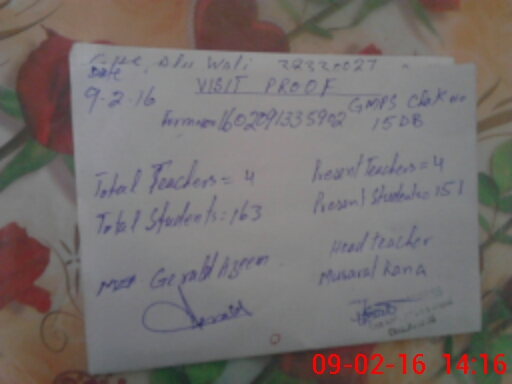 Wali 32330027
Date VISIT PROOF
9.2.16 GMPS Chak no
Form no 1602091335902 15 DB
Total Teachers = 4 Present Teachers = 4
Total Students = 163 Present Students = 151
Head teacher
Gerald Azeem Musarat Rana
09-02-16 14:16